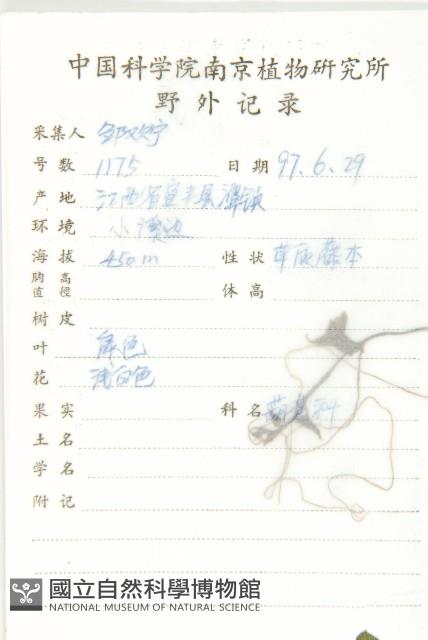 中国科学院南京植物研究所
野外记录
采集人
号数 1175 日期 97.6.29
产地 江西省宜丰县潭镇
环境 小溪边
海拔 450m 性状 草质藤本
胸高直径 体高
树皮
叶 绿色
花 浅白色
果实 科名 科
土名
学名
附记
國立自然科學博物館
NATIONAL MUSEUM OF NATURAL SCIENCE